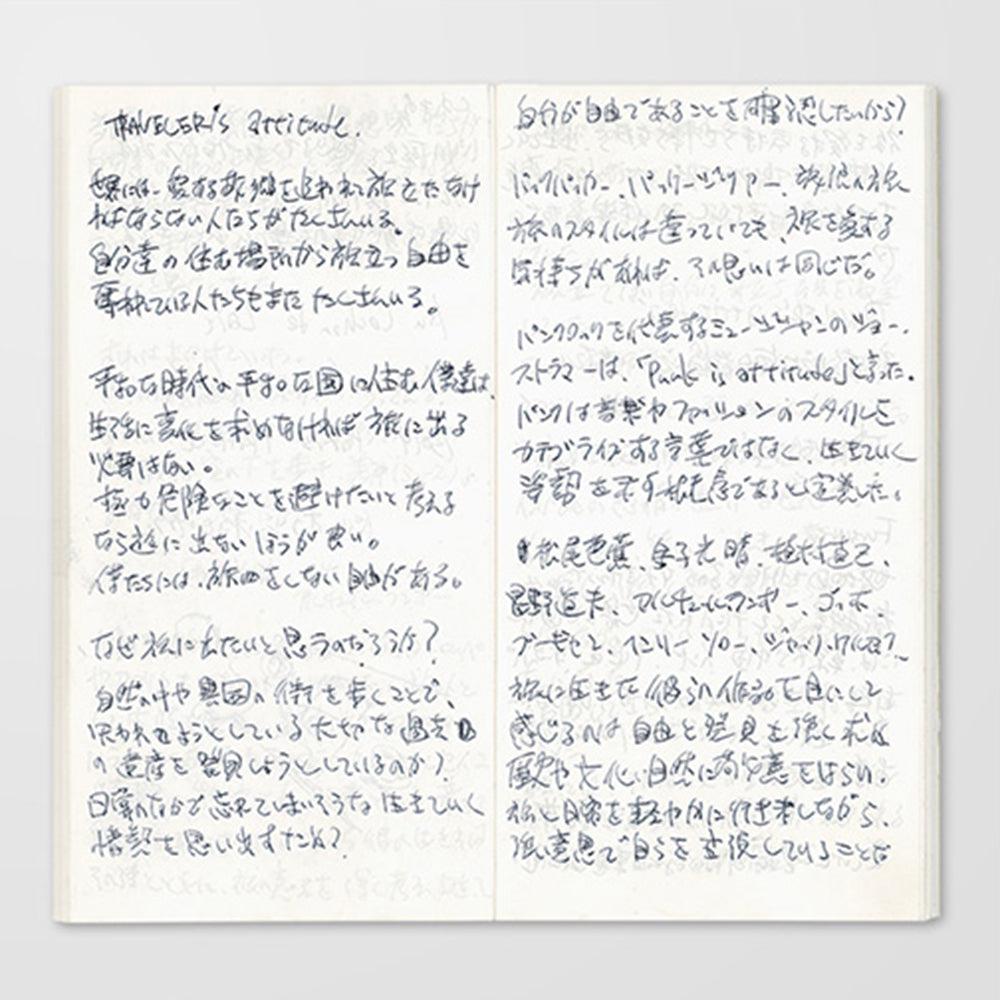 TRAVELER's attitude.
世界には、愛する故郷を追われて旅立たなけ
ればならない人たちがたくさんいる。
自分達の住む場所から旅立つ自由を
奪われている人たちもまたたくさんいる。
平和な時代の平和な国に住む僕達は、
生活に変化を求めなければ旅に出る
必要はない。
極力危険なことを避けたいと考える
なら旅に出ないほうが良い。
僕たちには、旅をしない自由がある。
なぜ旅に出たいと思うのだろうか?
自然の中や異国の街を歩くことで、
失われようとしている大切な過去
の遺産を発見しようとしているのか?
日常のなかで忘れてしまいそうな生きていく
姿勢を思い出すため?
自分が自由であることを確認したいから?
バックパッカー、パッケージツアー、放浪の旅
旅のスタイルは違っていても、旅を愛する
気持ちがあれば、その思いは同じだ。
パンクロックを代表するミュージシャンのジョー・
ストラマーは、「Punk is attitude」と言った。
パンクは音楽やファッションのスタイルを
カテゴライズする言葉ではなく、生きていく
姿勢を示す根底であると定義した。
松尾芭蕉、金子光晴、植村直己、
星野道夫、アルチュール・ランボー、ゴッホ、
ゴーギャン、ヘンリー・ソロー、ジャック・ケルアック
旅に生きた彼らの作品を目にして
感じるのは自由と発見を強く求め
歴史や文化、自然に敬意をはらい、
旅と日常を軽やかに行き来しながら、
強い意思で自らを表現していることだ